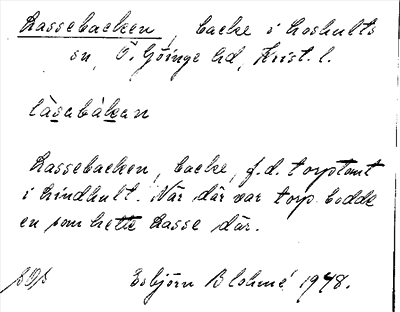 Lassebacken, backe i Loshults
sn, Ö. Göinge hd, Krist. l.
làsabàkan
Lassebacken, backe, f.d. torptomt
i Lindhult. När där var torp bodde
en som hette Lasse där.
Esbjörn Blohmé 1948.